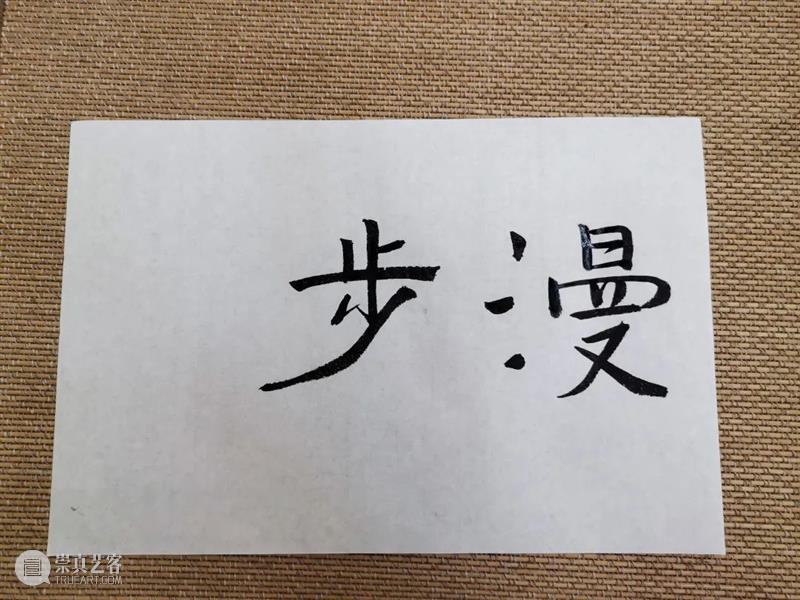 漫步
崇真艺客
TRUEART.COM